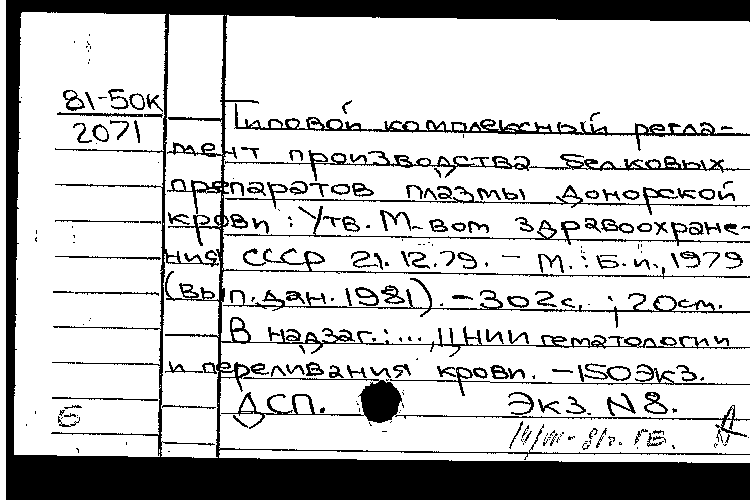 81-50к
2071
Типовой комплексный регла-
мент производства белковых
препаратов плазмы донорской
крови : Утв. М-вом здравоохране-
ния СССР 21.12.79. - М. : Б.и., 1979
(вып.дан. 1981). - 302с. ; 20см.
В надзаг.: ..., ЦНИИ гематологии
и переливания крови. - 150экз.
ДСП. Экз. N 8.
Б
81г. ГБ.